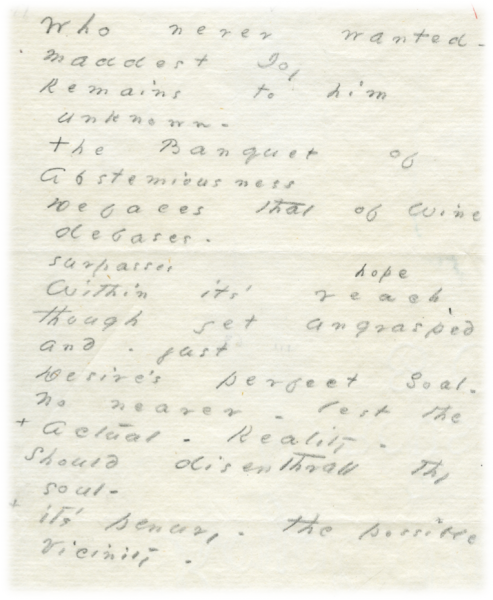 Who never wanted -
maddest Joy
Remains to him
unknown -
the Banquet of
Abstemiousness
Defaces that of Wine
debases -
surpasses hope
Within it's reach
though yet ungrasped
and - just
Desire's perfect Goal -
No nearer - lest the
+ Actual - Reality -
Should disenthrall thy
soul -
+ it's penury - the possible
vicinity -